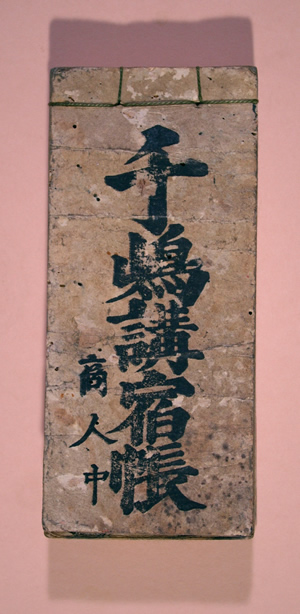 千嶋講宿帳
商人中